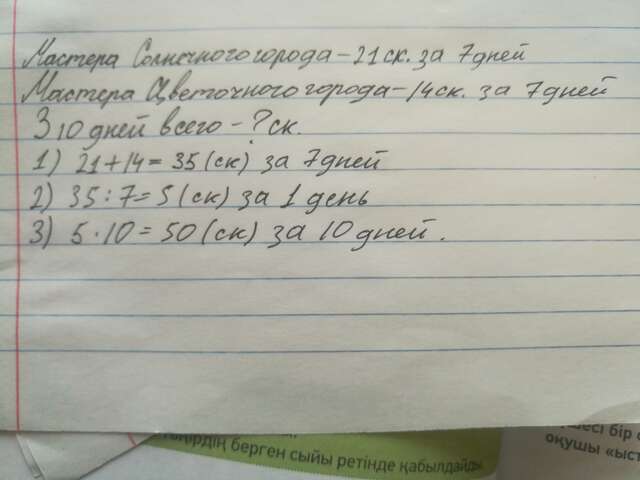 Мастера Солнечного города - 21 ск. за 7 дней
Мастера Цветочного города - 14 ск. за 7 дней
З 10 дней всего - ? ск.
1) 21 + 14 = 35 (ск) за 7 дней
2) 35 : 7 = 5 (ск) за 1 день
3) 5 · 10 = 50 (ск) за 10 дней.
берген сыйы ретінде қабылдайды
бір
оқушы «ыст